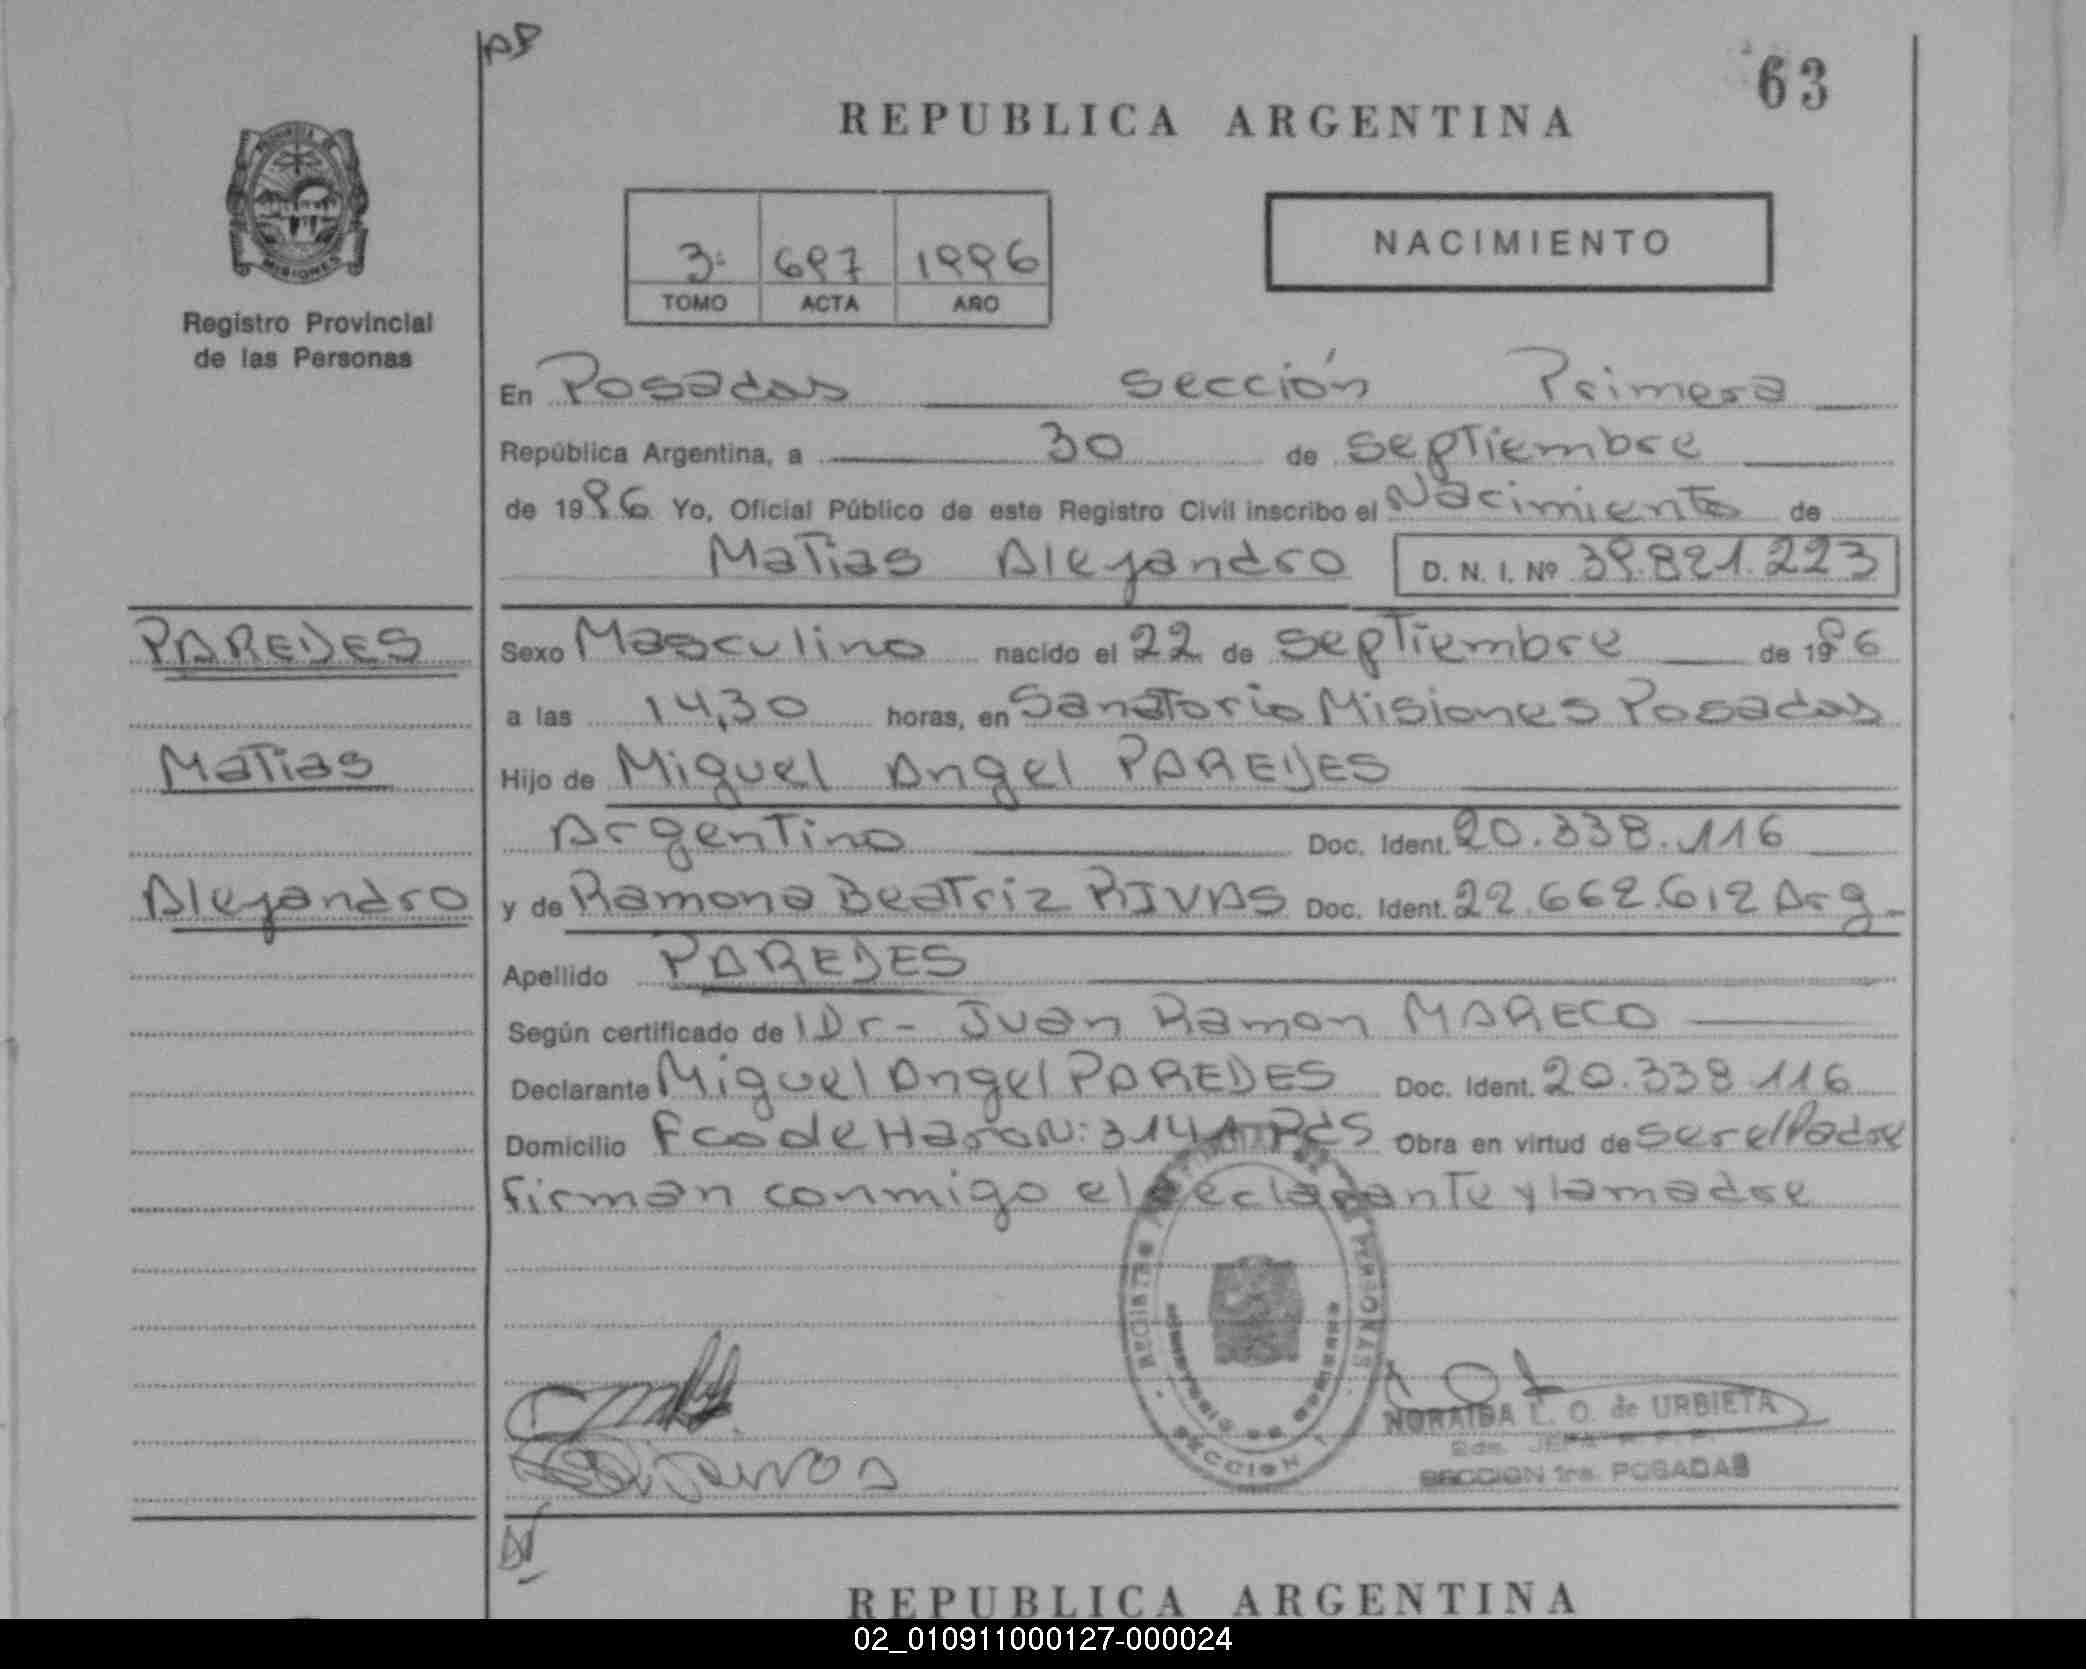 63
REPUBLICA ARGENTINA
MISIONES
Registro Provincial
de las Personas
3º 697 1996
TOMO ACTA AÑO
NACIMIENTO
En Posadas sección Primera
República Argentina, a 30 de septiembre
de 1996 Yo, Oficial Público de este Registro Civil inscribo el Nacimiento de
Matias Alejandro D. N. I. Nº 39.821.223
PAREDES
Sexo Masculino nacido el 22 de septiembre de 1996
a las 14,30 horas, en Sanatorio Misiones Posadas
Matias
Hijo de Miguel Angel PAREDES
Argentino Doc. Ident. 20.338.116
Alejandro
y de Ramona Beatriz RIVAS Doc. Ident. 22.662.612 Arg.
Apellido PAREDES
Según certificado de Dr- Juan Ramon MARECO
Declarante Miguel Angel PAREDES Doc. Ident. 20.338.116
Domicilio Fco de Haro N: 3141 Pdas Obra en virtud de ser el Padre
firman conmigo el declarante y la madre
REGISTRO PERSONAS
SECCION 1
NORAIDA L. O. de URBIETA
SECCION 1ra. POSADAS
REPUBLICA ARGENTINA
02_010911000127-000024